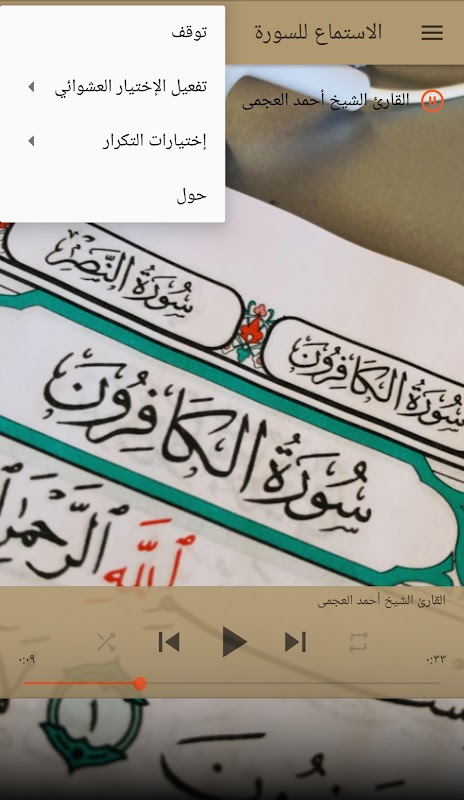 الاستماع للسورة
توقف
تفعيل الإختيار العشوائي
إختيارات التكرار
حول
القارئ الشيخ أحمد العجمى
سُورَةُ النَّصْرِ
سُورَةُ الكَافِرُونَ
سُورَةُ الكَافِرُونَ
ٱللَّهِ ٱلرَّحْمَٰنِ
القارئ الشيخ أحمد العجمى
٠:٠٩
٠:٣٣
١